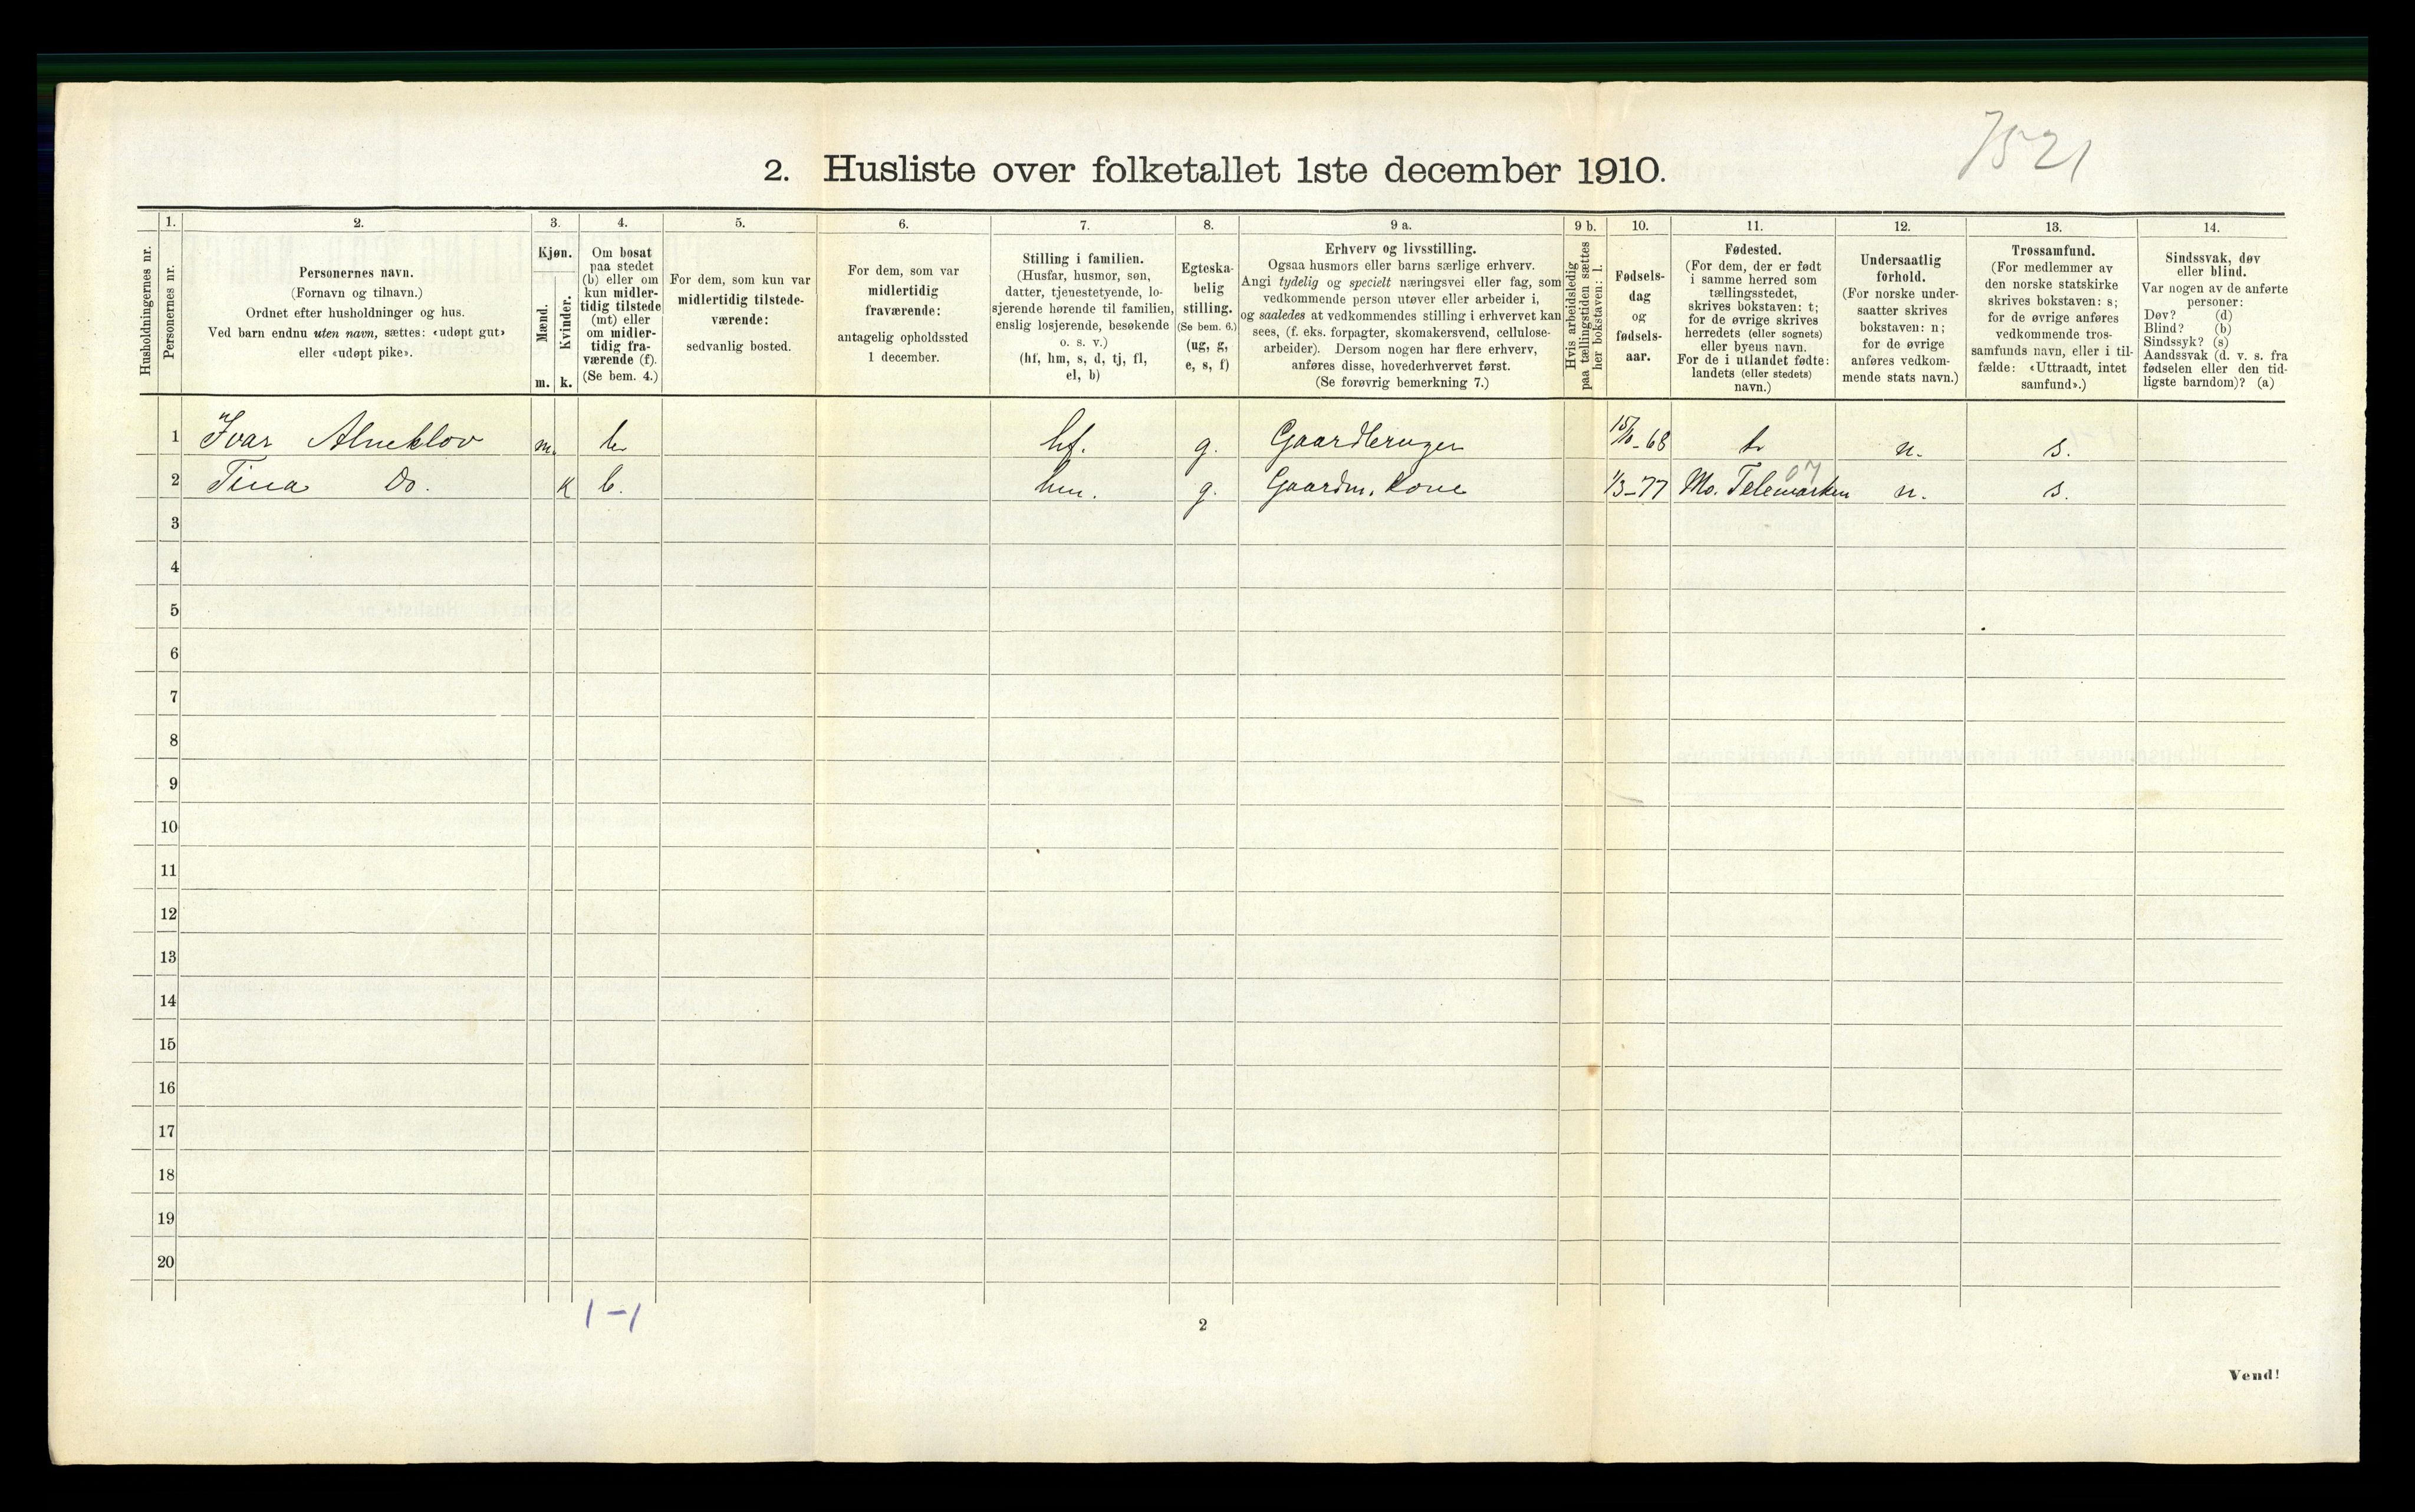 7521
2. Husliste over folketallet 1ste december 1910.
Husholdningernes nr.
1.
Personernes nr.
2.
Personernes navn.
(Fornavn og tilnavn.)
Ordnet efter husholdninger og hus.
Ved barn endnu uten navn, sættes: «udøpt gut»
eller «udøpt pike».
3.
Kjøn.
Mænd.
m.
Kvinder.
k.
4.
Om bosat
paa stedet
(b) eller om
kun midler-
tidig tilstede
(mt) eller
om midler-
tidig fra-
værende (f).
(Se bem. 4.)
5.
For dem, som kun var
midlertidig tilstede-
værende:
sedvanlig bosted.
6.
For dem, som var
midlertidig
fraværende:
antagelig opholdssted
1 december.
7.
Stilling i familien.
(Husfar, husmor, søn,
datter, tjenestetyende, lo-
sjerende hørende til familien,
enslig losjerende, besøkende
o. s. v.)
(hf, hm, s, d, tj, fl,
el, b)
8.
Egteska-
belig
stilling.
(Se bem. 6.)
(ug, g,
e, s, f)
9 a.
Erhverv og livsstilling.
Ogsaa husmors eller barns særlige erhverv.
Angi tydelig og specielt næringsvei eller fag, som
vedkommende person utøver eller arbeider i,
og saaledes at vedkommendes stilling i erhvervet kan
sees, (f. eks. forpagter, skomakersvend, cellulose-
arbeider). Dersom nogen har flere erhverv,
anføres disse, hovederhvervet først.
(Se forøvrig bemerkning 7.)
9 b.
Hvis arbeidsledig
paa tællingstiden sættes
her bokstaven: l.
10.
Fødsels-
dag
og
fødsels-
aar.
11.
Fødested.
(For dem, der er født
i samme herred som
tællingsstedet,
skrives bokstaven: t;
for de øvrige skrives
herredets (eller sognets)
eller byens navn.
For de i utlandet fødte:
landets (eller stedets)
navn.)
12.
Undersaatlig
forhold.
(For norske under-
saatter skrives
bokstaven: n;
for de øvrige
anføres vedkom-
mende stats navn.)
13.
Trossamfund.
(For medlemmer av
den norske statskirke
skrives bokstaven: s;
for de øvrige anføres
vedkommende tros-
samfunds navn, eller i til-
fælde: «Uttraadt, intet
samfund».)
14.
Sindssvak, døv
eller blind.
Var nogen av de anførte
personer:
Døv? (d)
Blind? (b)
Sindssyk? (s)
Aandssvak (d. v. s. fra
fødselen eller den tid-
ligste barndom)? (a)
1 Ivar Alneklov m. b hf. g. Gaardbruger -68 t n. s.
2 Tina Do. k b. hm. g. Gaardm. Kone 1/3-77 Mo. Telemarken 07 n. s.
3
4
5
6
7
8
9
10
11
12
13
14
15
16
17
18
19
20
1-1
2
Vend!